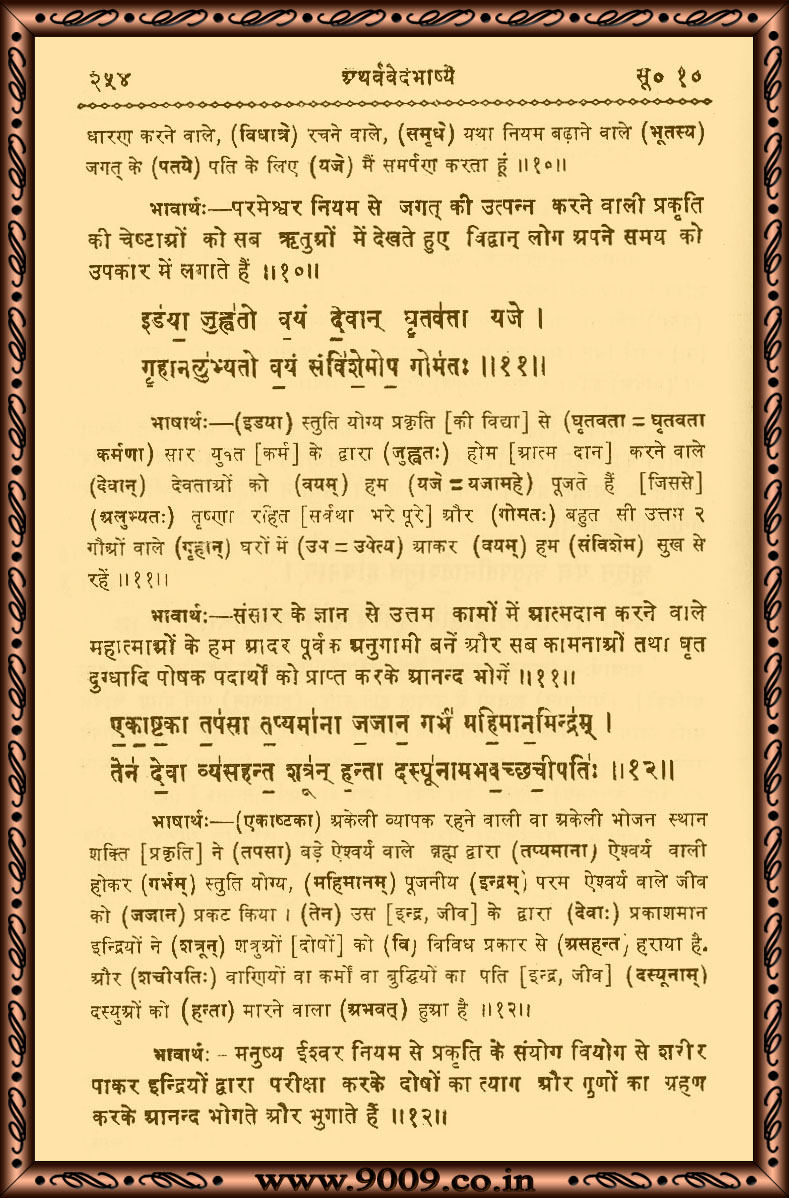 २५४ अथर्ववेदभाष्ये सू० १०
धारण करने वाले, (विधात्रे) रचने वाले, (समृधे) यथा नियम बढ़ाने वाले (भूतस्य)
जगत् के (पतये) पति के लिए (यजे) मैं समर्पण करता हूं ॥१०॥
भावार्थः—परमेश्वर नियम से जगत् की उत्पन्न करने वाली प्रकृति
की चेष्टाओं को सब ऋतुओं में देखते हुए विद्वान् लोग अपने समय को
उपकार में लगाते हैं ॥१०॥
इड॑या॒ जुह्व॑तो व॒यं दे॒वान् घृ॒तव॑ता यजे ।
गृ॒हानलु॑भ्यतो व॒यं संवि॑शे॒मोप॒ गोम॑तः ॥११॥
भाषार्थः—(इडया) स्तुति योग्य प्रकृति [की विद्या] से (घृतवता = घृतवता
कर्मणा) सार युक्त [कर्म] के द्वारा (जुह्वतः) होम [आत्म दान] करने वाले
(देवान्) देवताओं को (वयम्) हम (यजे = यजामहे) पूजते हैं [जिससे]
(अलुभ्यतः) तृष्णा रहित [सर्वथा भरे पूरे] और (गोमतः) बहुत सी उत्तम २
गौओं वाले (गृहान्) घरों में (उप = उपेत्य) आकर (वयम्) हम (संविशेम) सुख से
रहें ॥११॥
भावार्थः—संसार के ज्ञान से उत्तम कामों में आत्मदान करने वाले
महात्माओं के हम आदर पूर्वक अनुगामी बनें और सब कामनाओं तथा घृत
दुग्धादि पोषक पदार्थों को प्राप्त करके आनन्द भोगें ॥११॥
ए॒का॒ष्ट॒का तप॑सा त॒प्यमा॑ना ज॒जान॒ गर्भं॑ महि॒मान॒मिन्द्र॑म् ।
तेन॑ दे॒वा व्य॑सहन्त॒ शत्रू॑न् ह॒न्ता दस्यू॑नामभव॒च्छची॒पतिः॑ ॥१२॥
भाषार्थः—(एकाष्टका) अकेली व्यापक रहने वाली वा अकेली भोजन स्थान
शक्ति [प्रकृति] ने (तपसा) बड़े ऐश्वर्य वाले ब्रह्म द्वारा (तप्यमाना) ऐश्वर्य वाली
होकर (गर्भम्) स्तुति योग्य, (महिमानम्) पूजनीय (इन्द्रम्) परम ऐश्वर्य वाले जीव
को (जजान) प्रकट किया । (तेन) उस [इन्द्र, जीव] के द्वारा (देवाः) प्रकाशमान
इन्द्रियों ने (शत्रून्) शत्रुओं [दोषों] को (वि) विविध प्रकार से (असहन्त) हराया है.
और (शचीपतिः) वाणियों वा कर्मों वा बुद्धियों का पति [इन्द्र, जीव] (दस्यूनाम्)
दस्युओं को (हन्ता) मारने वाला (अभवत्) हुआ है ॥१२॥
भावार्थः - मनुष्य ईश्वर नियम से प्रकृति के संयोग वियोग से शरीर
पाकर इन्द्रियों द्वारा परीक्षा करके दोषों का त्याग और गुणों का ग्रहण
करके आनन्द भोगते और भुगाते हैं ॥१२॥
www.9009.co.in